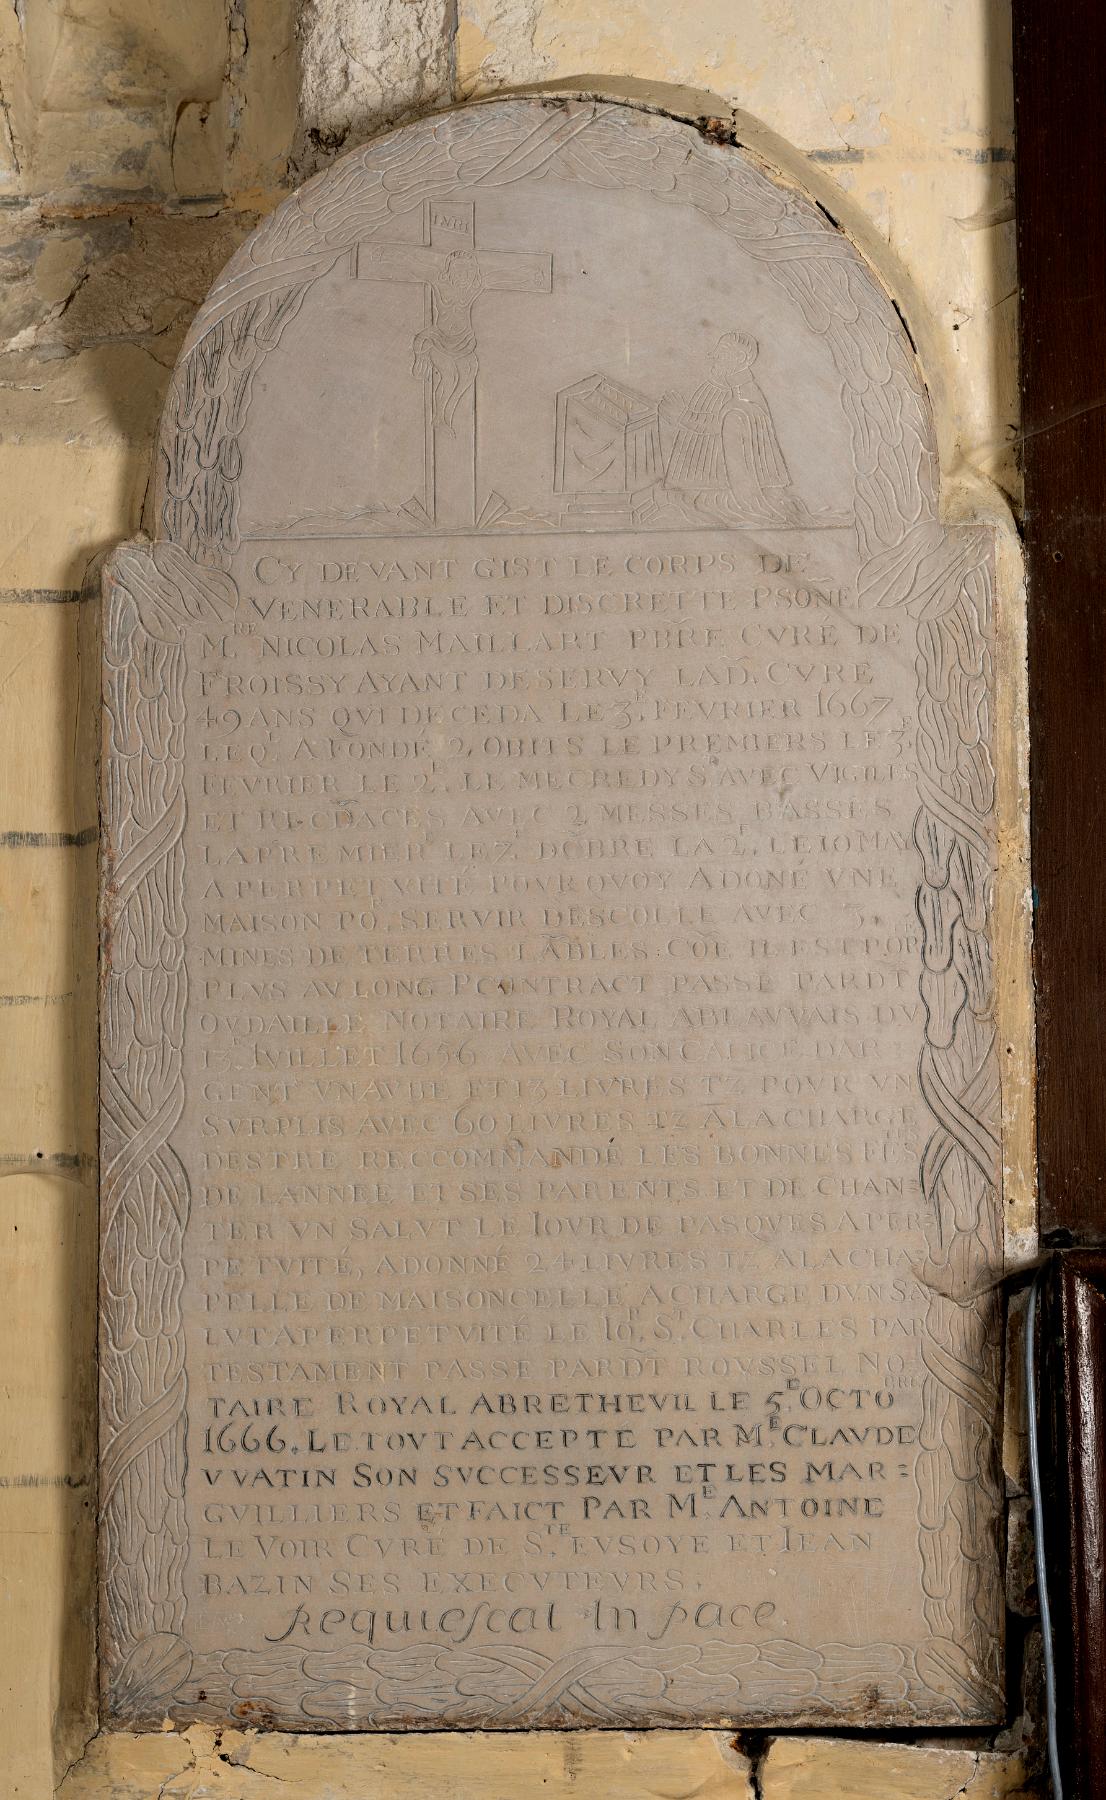 INRI
CY DEVANT GIST LE CORPS DE
VENERABLE ET DISCRETTE PSONE
M.RE NICOLAS MAILLART PBRE CVRÉ DE
FROISSY AYANT DESERVY LAD. CVRE
49 ANS QVI DECEDA LE 3.E FEVRIER 1667
LEQL A FONDÉ 2 OBITS LE PREMIERS LE 3.E
FEVRIER LE 2.E LE MECREDY St AVEC VIGILES
ET AVEC 2 MESSES BASSES
LA PREMIER LE 7.E DOBRE LA 2.E LE 10 MAY
A PERPETVITÉ POVR QVOY A DONÉ VNE
MAISON POR SERVIR DESCOLLE AVEC 3.
MINES DE TERRES LABLES COE IL EST POR
PLVS AV LONG P CONTRACT PASSÉ PARDT
OVDAILLE NOTAIRE ROYAL ABEAVVAIS DV
13.E IVILLET 1656 AVEC SON CALICE DAR:
GENT VN AVBE ET 13 LIVRES TZ POVR VN
SVRPLIS AVEC 60 LIVRES TZ ALACHARGE
DESTRE RECCOMMANDÉ LES BONNES FES
DE LANNEE ET SES PARENTS ET DE CHAN=
TER VN SALVT LE IOVR DE PASQVES APER=
PETVITÉ, ADONNÉ 24 LIVRES TZ ALACHA=
PELLE DE MAISONCELLE ACHARGE DVN SA
LVT APERPETVITÉ LE IOR ST CHARLES PAR
TESTAMENT PASSE PARDT ROVSSEL NO=
TAIRE ROYAL ABRETHEVIL LE 5.E OCTOBRE
1666. LE TOVT ACCEPTE PAR M.E CLAVDE
VVATIN SON SVCCESSEVR ET LES MAR=
GVILLIERS ET FAICT PAR M.E ANTOINE
LE VOIR CVRE DE S.TE EVSOYE ET IEAN
BAZIN SES EXECVTEVRS,
Requiescat In pace.